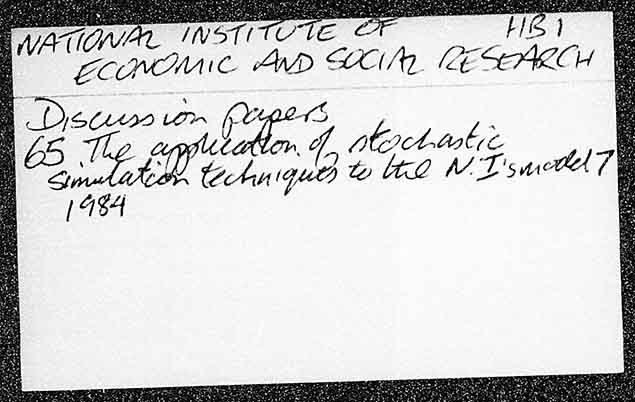 NATIONAL INSTITUTE OF HB1
ECONOMIC AND SOCIAL RESEARCH
Discussion papers
65 The application of stochastic
simulation techniques to the N.I's model 7
1984